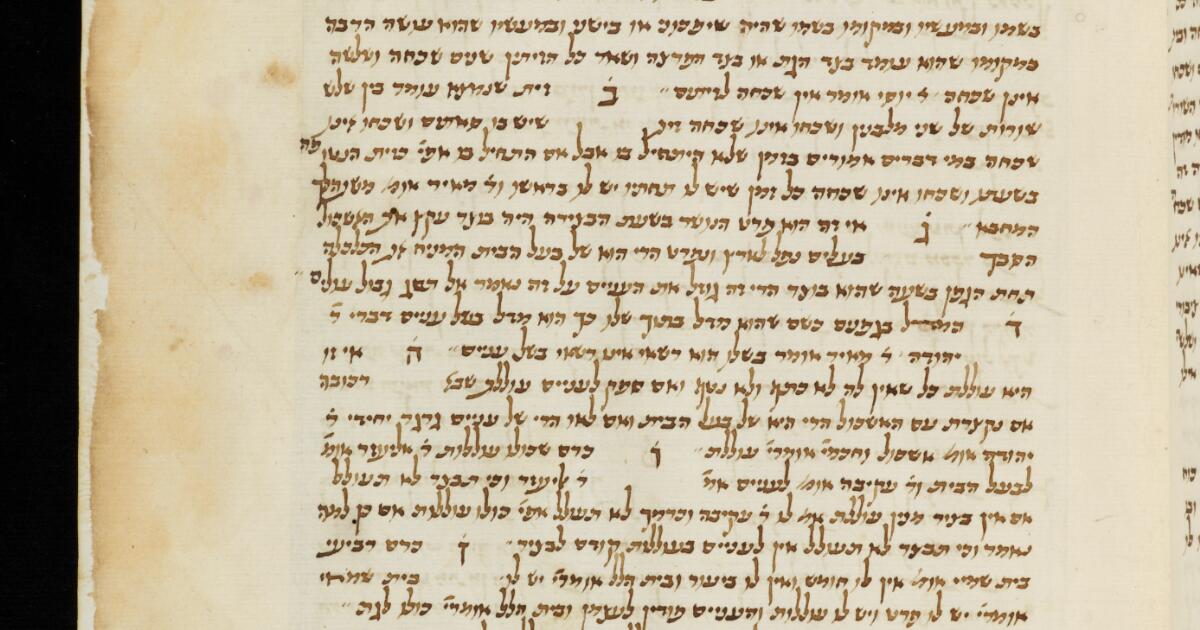 בשמו ובמעשיו ובמקומו בשמו שהיה שיפכוני או בישני ובמעשיו שהוא עושה הרבה
במקומו שהוא עומד בצד הגת או בצד הפרצה ושאר כל הזיתים שנים שכחה ושלשה
אינן שכחה ר׳ יוסי אומר אין שכחה לזיתים ב זית שנמצא עומד בין שלש
שורות של שני מלבנין ושכחו אינו שכחה זית שיש בו סאתים ושכחו אינו
שכחה במי דברים אמורים בזמן שלא התחיל בו אבל אם התחיל בו אפי׳ כזית הנטופה
בשעתו ושכחו אינו שכחה כל זמן שיש לו תחתיו יש לו בראשו ור׳ מאיר אומ׳ משהלך
המחבא ג אי זה הוא פרט הנושר בשעת הבצירה היה בוצר עקץ את האשכול
הסבך בעלים נפל לארץ ונפרט הרי הוא של בעל הבית המניח את הכלכלה
תחת הגפן בשעה שהוא בוצר הרי זה גוזל את העניים על זה נאמר אל תסג גבול עולים
ד המידל בגפנים כשם שהוא מדל בתוך שלו כך הוא מדל בשל עניים דברי ר׳
יהודה ר׳ מאיר אומר בשלו הוא רשאי אינו רשאי בשל עניים ה אי זו
היא עוללת כל שאין לה לא כתף ולא נטף ואם ספק לעניים עוללת שב׳ רכובה
אם נקצרת עם האשכול הרי היא של בעל הבית ואם לאו הרי של עניים גרגר יחידי ר׳
יהודה אומ׳ אשכול וחכמ׳ אומרי׳ עוללת ו כרם שכולו עוללות ר׳ אליעזר אומ׳
לבעל הבית ור׳ עקיבה אומ׳ לעניים אמ׳ ר׳ ליעזר וכי תבצר לא תעולל
אם אין בציר מנין עוללת אמ׳ לו ר׳ עקיבה וכרמך לא תעולל אפי׳ כולו עוללות אם כן למה
נאמר וכי תבצר לא תעולל אין לעניים בעוללת קודם לבציר ז כרם רביעי
בית שמיי אומ׳ אין לו חומש ואין לו ביעור ובית הלל אומרי׳ יש לו בית שמאי
אומרי׳ יש לו פרט ויש לו עוללות והעניים פודין לעצמן ובית הלל אומרי׳ כולו לגת